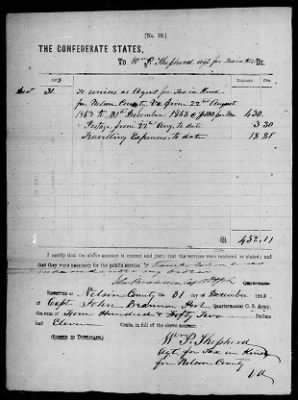 (No. 22.)
THE CONFEDERATE STATES,
To Wm P. Shepherd agt for Tax in Kind Dr.
DOLLARS.
31. To services as Agent for Tax in Kind
for Nelson County Va from 22nd August
1863 to 31st December 1863 @ $100 per Mo 430.
" Postage from 22nd Aug. to date 3.30
Travelling Expenses to date 18.81
452.11
I certify that the above account is correct and just; that the services were rendered as stated; and that
they were necessary for the public service
Quartermaster.
RECEIVED at Nelson County 31 of December 186
of Capt John Brannan Quartermaster C. S. Army,
Four Hundred & Fifty Two Dollars
Eleven Cents, in full of the above account.
(SIGNED IN DUPLICATE.)
W. P. Shepherd
Agt. for Tax in Kind
for Nelson County
Va